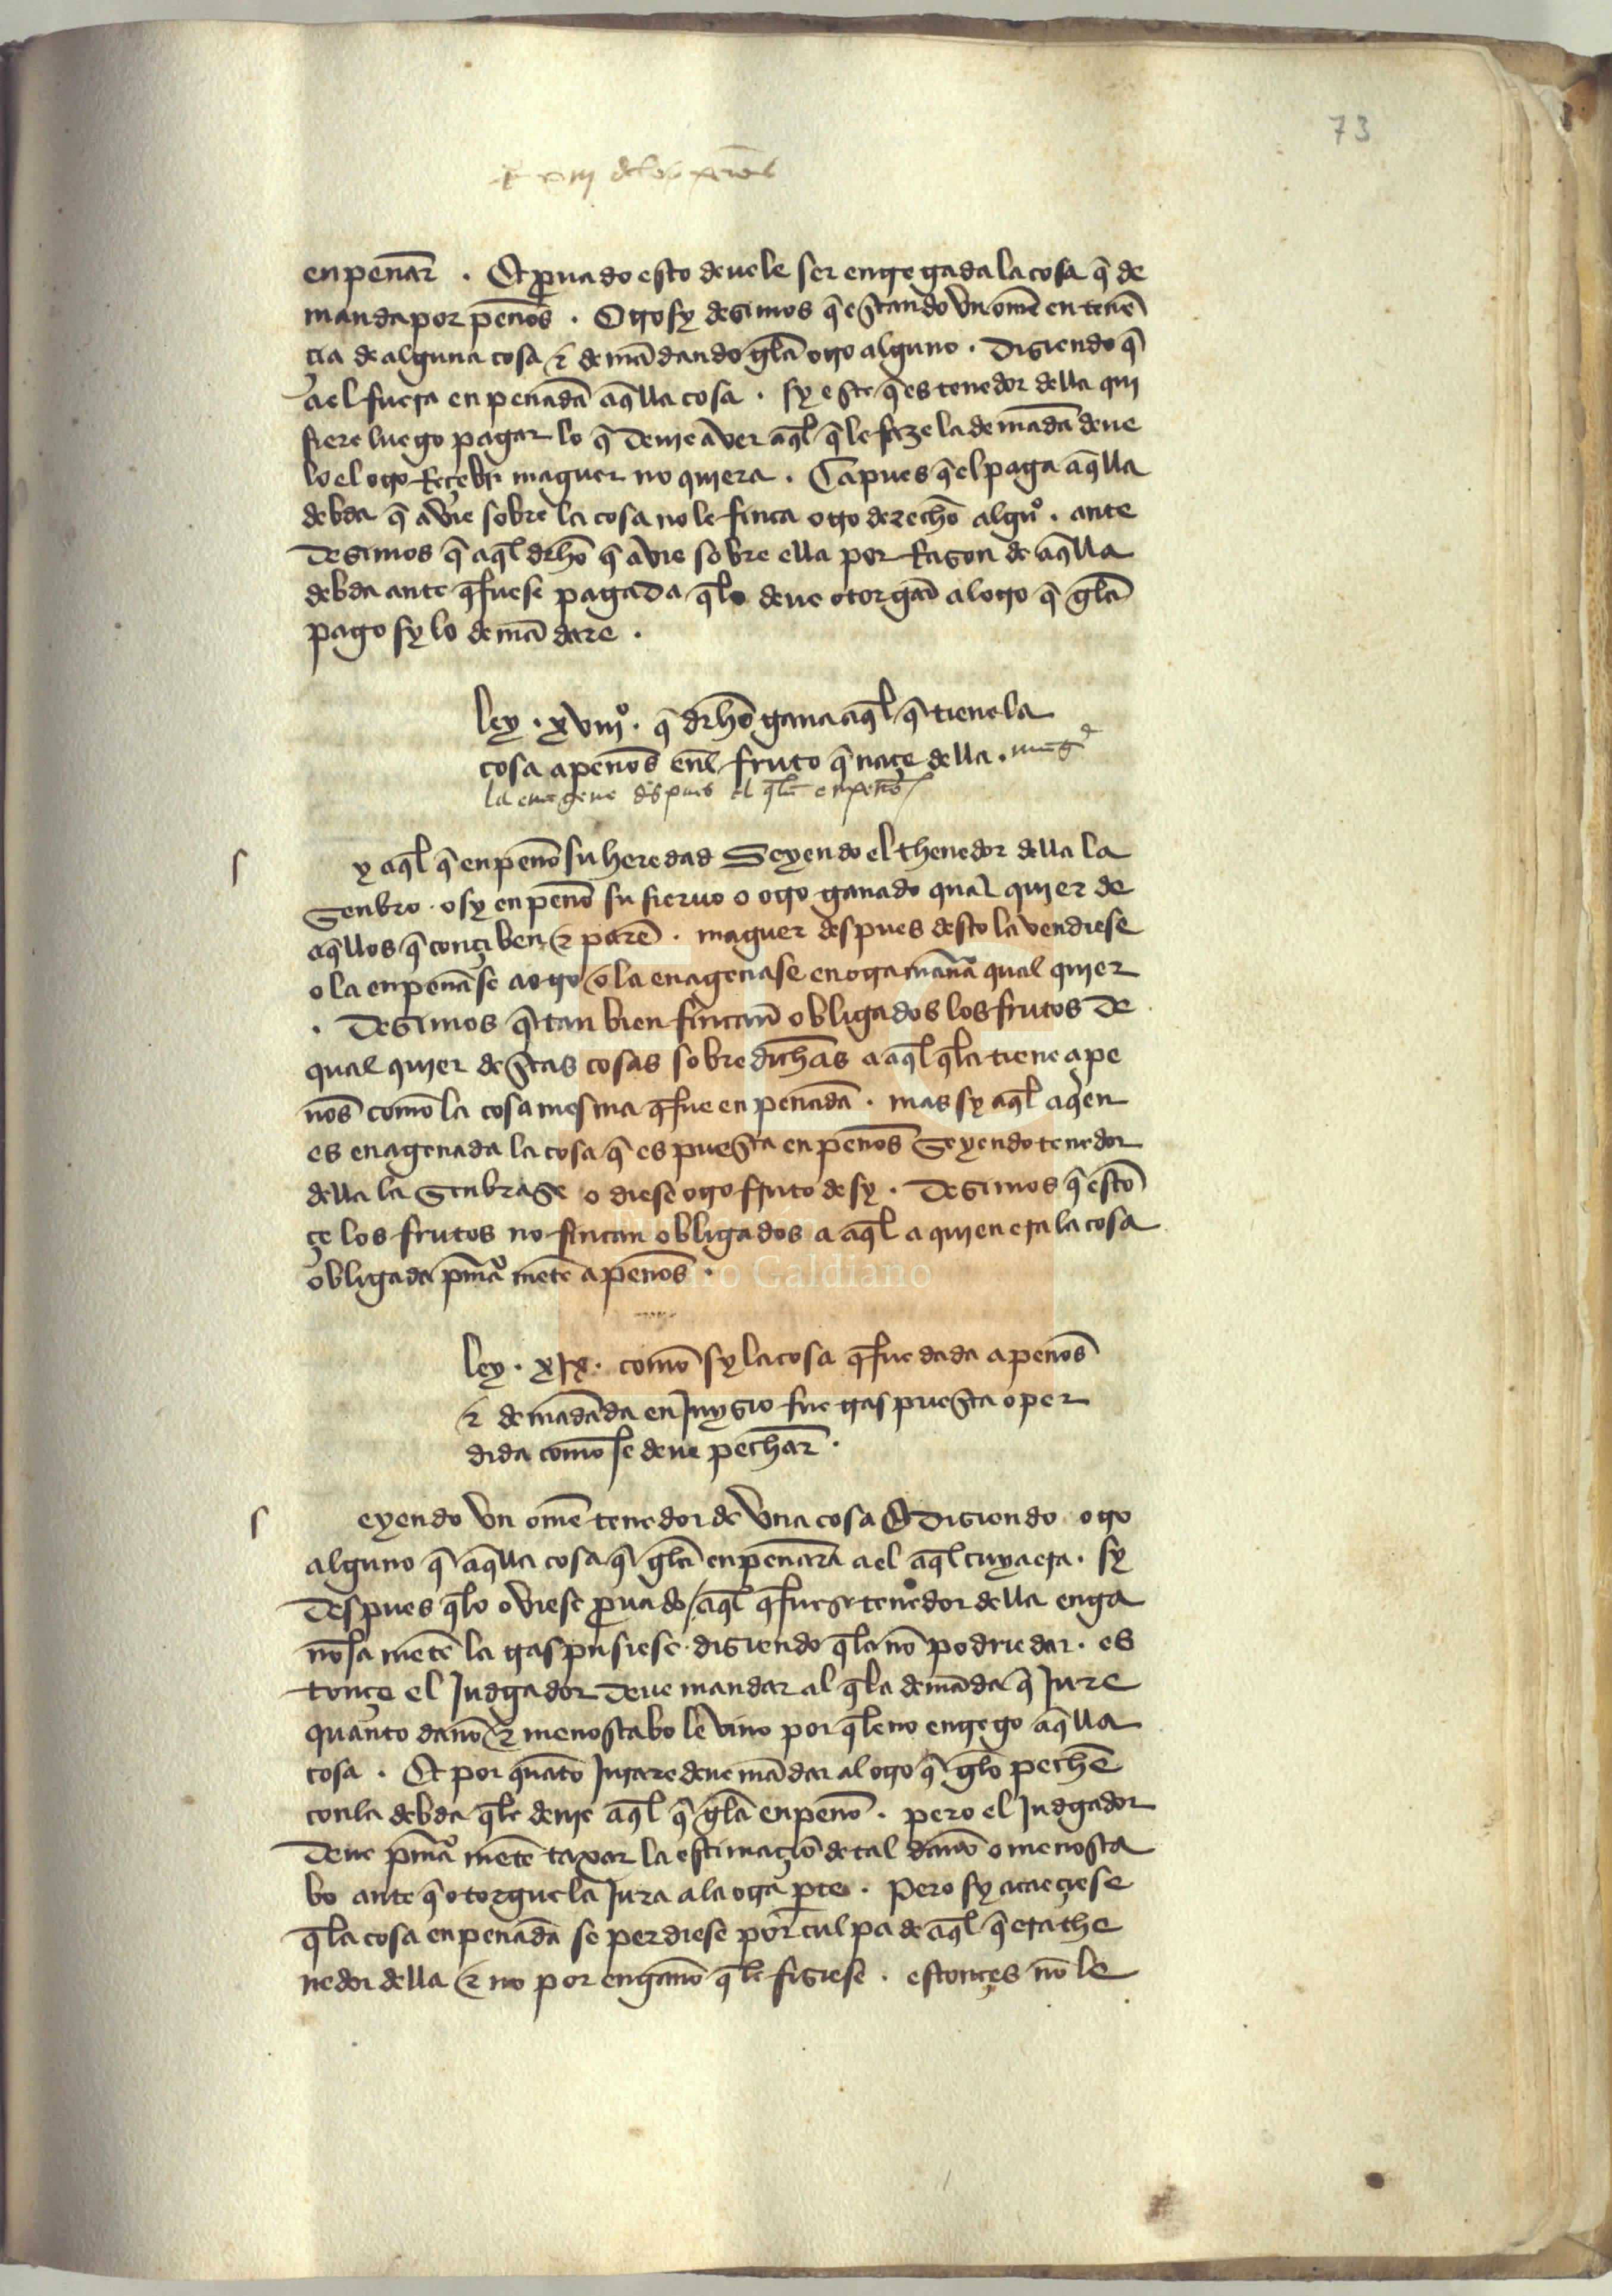 73
enpenar̄ . Et ꝓuado esto deuele ser entregada la cosa q̄ de
manda por peños . Otrosy desimos q̄ estando vn ome en tenē
çia de alguna cosa & demādando gela otro alguno . disiendo q̄
a el fuera enpeñada aq̄lla cosa . sy este q̄ es tenedor della qui
siere luego pagar lo q̄ deuie aver aql̄ q̄ le faze la demāda deue
lo el otro Reçebir maguer no quiera . Ca pues q̄ el paga aq̄lla
debda q̄ avie sobre la cosa no le finca otro derecho algūo . ante
desimos q̄ aql̄ drho q̄ avie sobre ella por Rason de aq̄lla
debda ante q̄ fuese pagada q̄ lo deue otorgar al otro q̄ gela
pago sy lo demādare .
ley . xviijº . q̄ drho gana aql̄ q̄ tiene la
cosa a peños enl̄ fruto q̄ naçe della .
la enagene despues el q̄ la enpeño
y aql̄ q̄ enpeño su heredad Seyendo el thenedor della la
Senbro . o sy enpeño su sieruo o otro ganado qual quier de
aq̄llos q̄ conçiben & parē . maguer despues desto la vendiese
o la enpeñase a otro o la enagenase en otra manā qual quier
. desimos q̄ tan bien fincan obligados los frutos de
qual quier destas cosas sobre dichas a aql̄ q̄ la tiene a pe
ños como la cosa mesma q̄ fue enpeñada . mas sy aql̄ aqien
es enagenada la cosa q̄ es puesta en peños Seyendo tenedor
della la Senbrase o diese otro fruto de sy . desimos q̄ estō
çe los frutos no fincan obligados a aql̄ a quien era la cosa
obligada pmā mēte a peños .
ley . xix . como sy la cosa q̄ fue dada a peños
& demādada en Juysio fue tras puesta o per
dida como se deue pechar .
eyendo vn ome tenedor de vna cosa Et disiendo otro
alguno q̄ aq̄lla cosa q̄ gela enpeñara a el aql̄ cuya era . sy
despues q̄ lo oviese ꝓuado / aql̄ q̄ fuese tenedor della enga
ñosa mēte la tras pusiese . disiendo q̄ la nō podrie dar . es
tonçe el Judgador deue mandar al q̄ la demāda q̄ Jure
quanto daño & menoscabo le vino por q̄ le no entrego aq̄lla
cosa . Et por quāto Jurare deue mādar al otro q̄ gelo peche
con la debda q̄ le deuie aql̄ q̄ gela enpeño . pero el Judgador
deue pmā mēte taxar la estimaçiō de tal daño o menosca
bo ante q̄ otorgue la Jura a la otra pte . Pero sy acaeçiese
q̄ la cosa enpeñada se perdiese por culpa de aql̄ q̄ era the
nedor della & no por engaño q̄ le fisiese . estonçes nō le